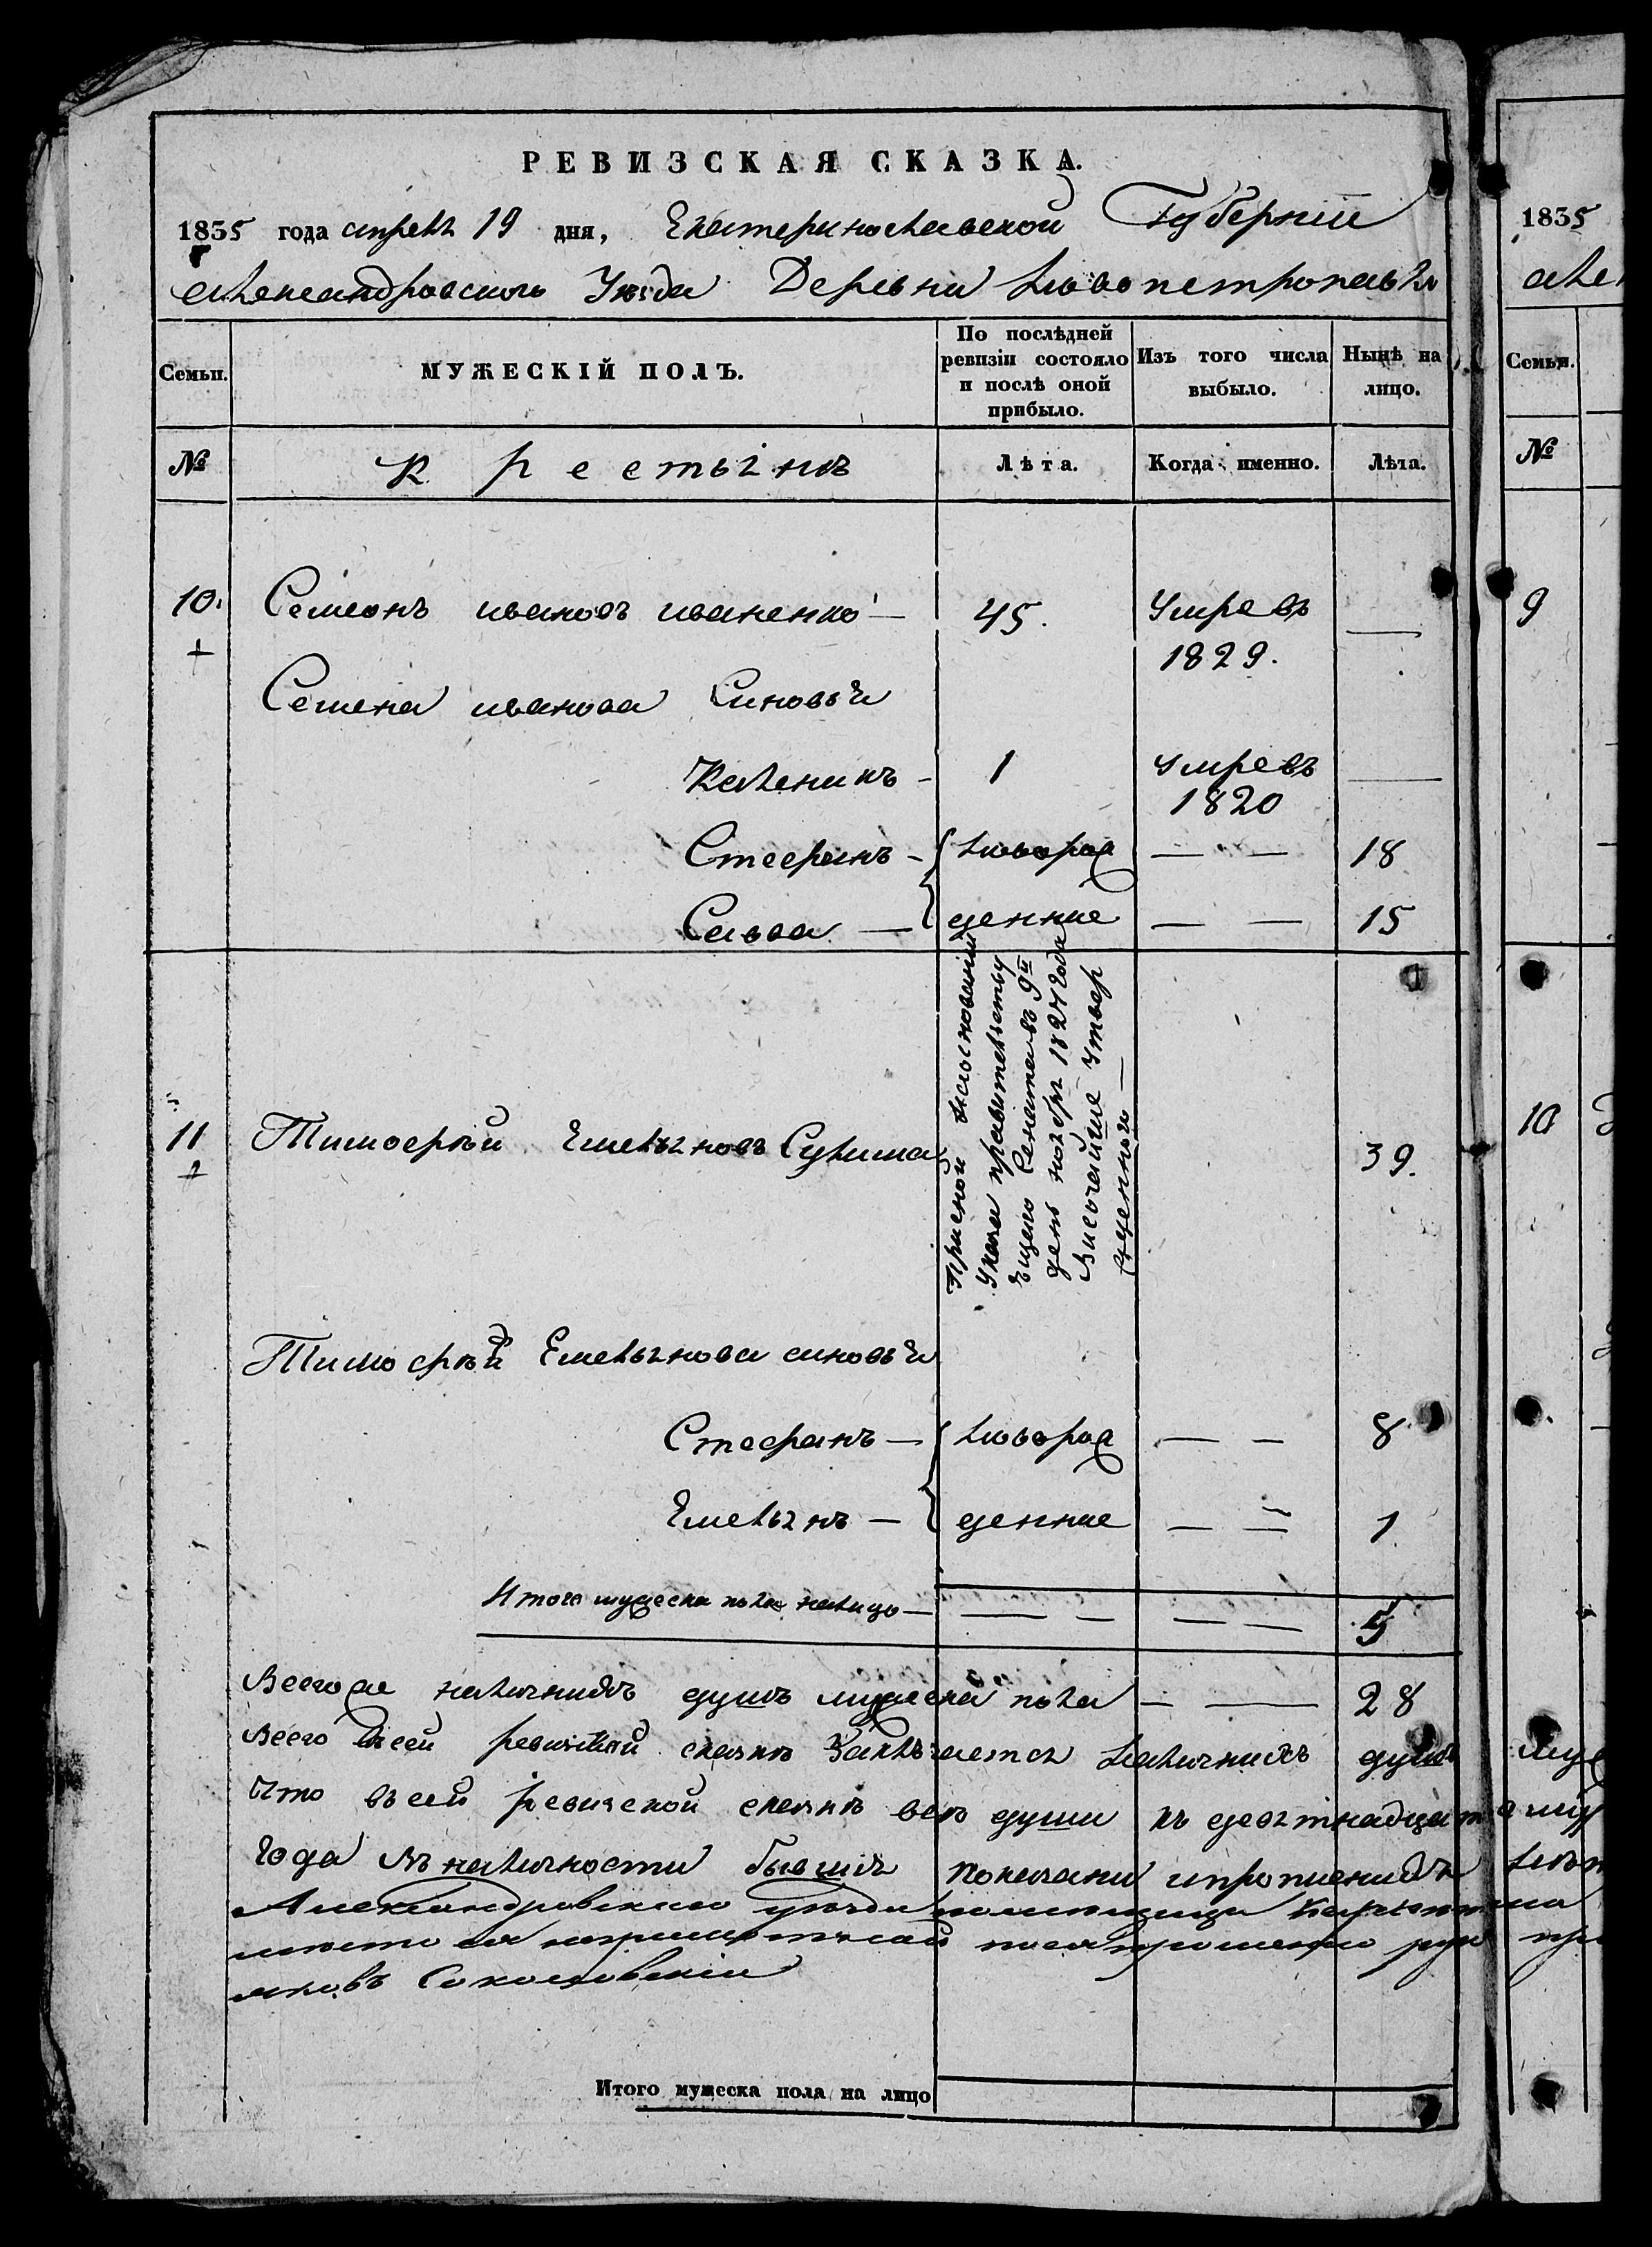 РЕВИЗСКАЯ СКАЗКА.
1835 года апреля 19 дня, Екатеринославской Губернии
Александровского Уезда Деревни Новопетропавло
Семьи.
МУЖЕСКІЙ ПОЛЪ.
По послѣдней ревизіи состояло и послѣ оной прибыло.
Изъ того числа выбыло.
Нынѣ на лицо.
№
Крестьянъ
Лѣта.
Когда именно.
Лѣта.
10.
Семионъ ивановъ иваненко — 45. Умревъ —
1829.
Семена иванова Синовья
Каленикъ - 1 умревъ —
1820
Стефанъ - новорож — — 18
Савва — денние — — 15
Присной на основании
Указа правительству
ющего Сената въ 9й
день ноября 1827 года
Височайше Утвер
жденной —
11 Тимофей Емельяновъ Сулима 39.
Тимофея Емельянова синовья
Стефанъ — новорож — — 8
Емельянъ — денние — — 1
Итого мужеска пола налицо — — — — — 5
Всегоже наличнихъ душъ мужеска пола — — 28
Всего всей ревизской сказке Заключается Наличнихъ душъ
Что въ сей ревизской сказке все души къ девятнадцат
Года въ наличности бывшие показани ипрописнихъ
Александровского уезда помещица
Соколовский
Итого мужеска пола на лицо
1835
але
Семьи.
№
9
10
муж